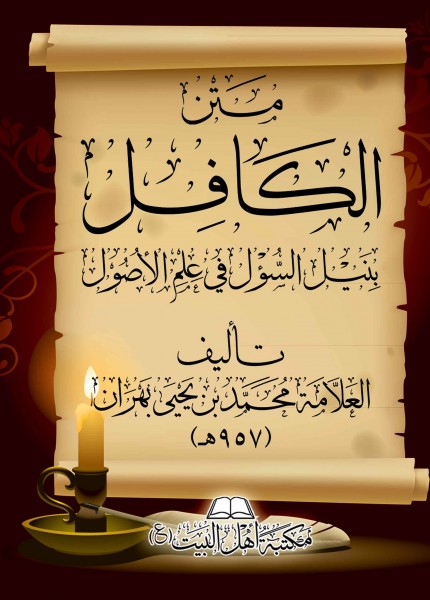 متن
الكافل
بنيل السؤل في علم الأصول
تأليف
العلامة محمد بن يحيى بهران
(٩٥٧هـ)
مكتبة أهل البيت (ع)